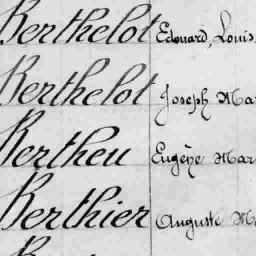 Berthelot Edouard, Louis,
Berthelot Joseph Mar
Bertheu Eugène Mar
Berthier Auguste Ma